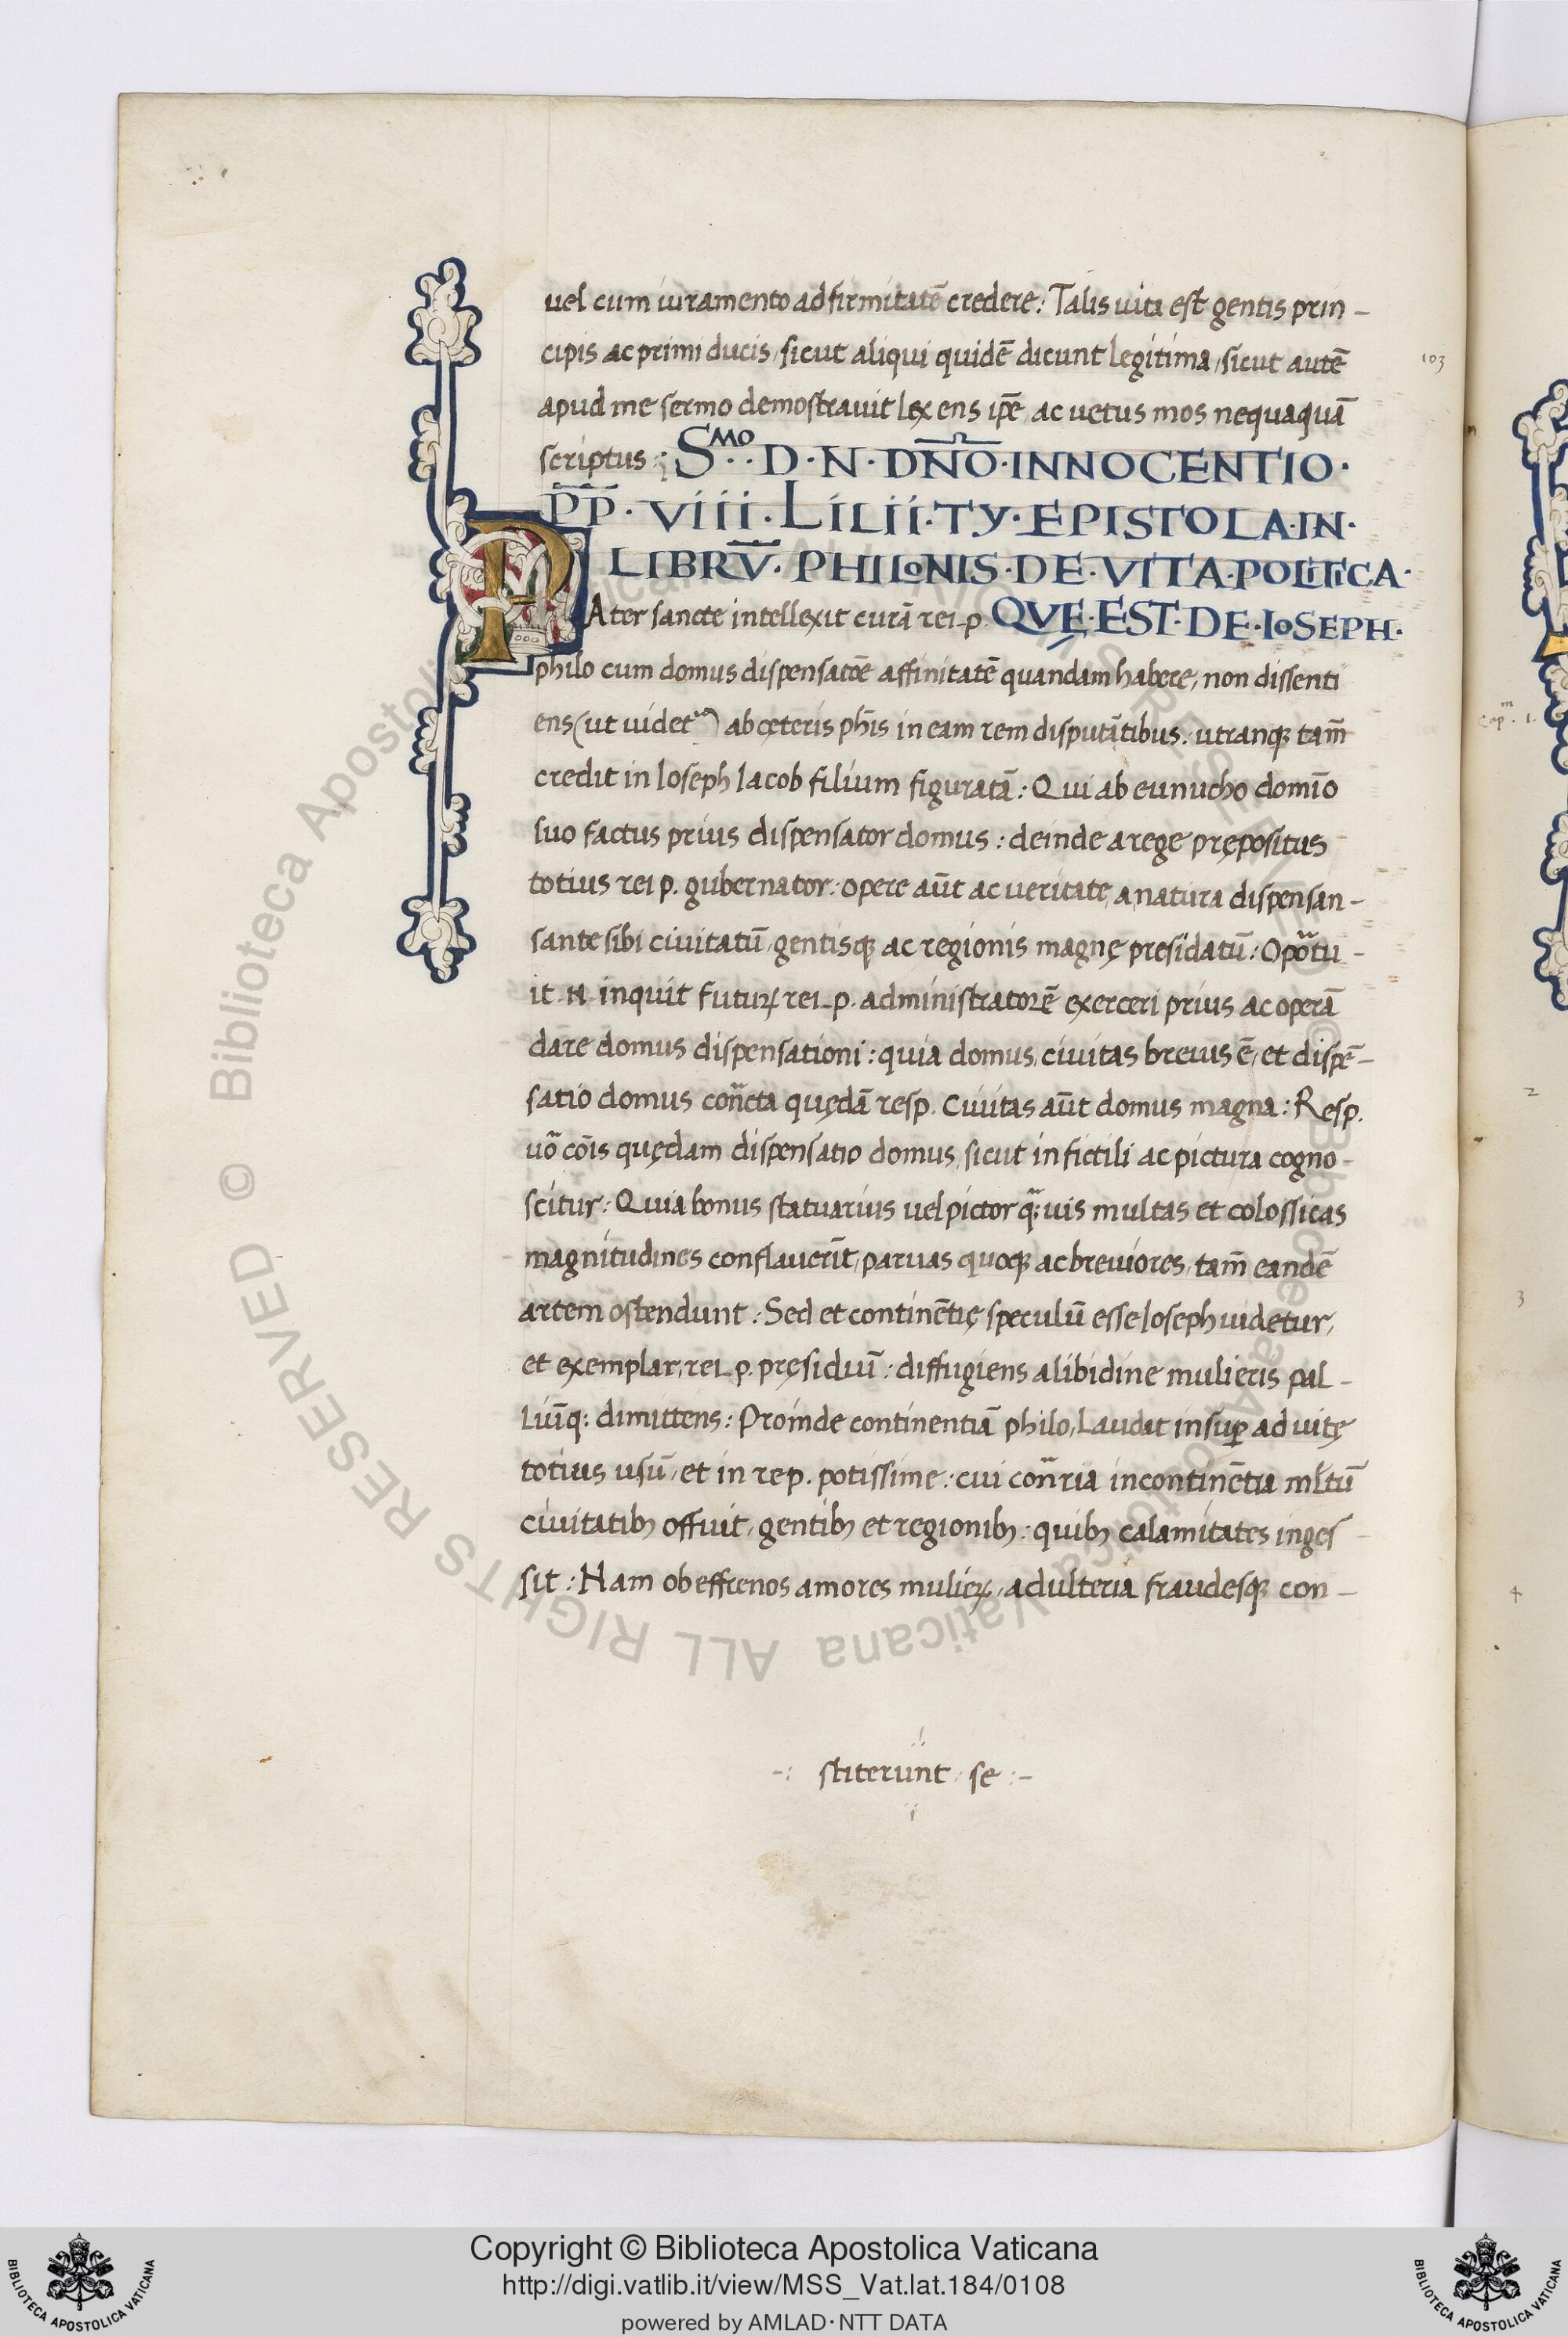 uel cum iuramento ad firmitatē credere: Talis uita est gentis prin-
cipis ac primi ducis, sicut aliqui quidē dicunt legitima, sicut autē
103
apud me sermo demostrauit lex ens ip̄e ac uetus mos nequaquā
scriptus: Sᴹᴼ·· D· N· DN̄O· INNOCENTIO·
P̄P̄· VIII· LILII· TY· EPISTOLA· IN·
LIBRV̄· PHILONIS· DE· VITA· POLITICA·
PAter sancte intellexit curā rei p. QVĘ· EST· DE· IOSEPH·
philo cum domus dispensatōe affinitatē quandam habere, non dissenti
ens (ut uidet᷑) ab cęteris ph̄is in eam rem disputātibus: utranqꝫ tam̄
credit in Ioseph Iacob filium figuratā: Qui ab eunucho domīo
suo factus prius dispensator domus: deinde a rege prępositus
totius rei p. gubernator: opere aūt ac ueritate, a natura dispensan-
sante sibi ciuitatū, gentisqꝫ ac regionis magnę presidatū: Oportu-
it .N. inquit futurꝝ rei p. administratorē exerceri prius ac operā
dare domus dispensationi: quia domus, ciuitas breuis ē, et dispē-
satio domus cont̄cta quędā resp. Ciuitas aūt domus magna: Resp.
uō cōis quędam dispensatio domus, sicut in fictili ac pictura cogno-
scitur: Quia bonus statuarius uel pictor qᷓ;uis multas et colossicas
magnitudines conflauerīt, paruas quoqꝫ ac breuiores, tam̄ eandē
artem ostendunt: Sed et continētię speculū esse Ioseph uidetur,
et exemplar, rei p. pręsidiū: diffugiens a libidine mulieris pal-
liūq: dimittens: Proinde continentiā philo, Laudat insuꝑ ad uitę
totius usū, et in re p. potissime: cui con̄ria incontinētia ml̄tū
ciuitatibꝫ offuit, gentibꝫ et regionibꝫ: quibꝫ calamitates inges
sit: Nam ob effrenos amores mulieꝝ, adulteria fraudesqꝫ con-
-: stiterunt se :-
Cap.ᵐ 1.
2
3
4
© Biblioteca Apostolica Vaticana ALL RIGHTS RESERVED
Copyright © Biblioteca Apostolica Vaticana
http://digi.vatlib.it/view/MSS_Vat.lat.184/0108
powered by AMLAD·NTT DATA
BIBLIOTECA APOSTOLICA VATICANA
BIBLIOTECA APOSTOLICA VATICANA